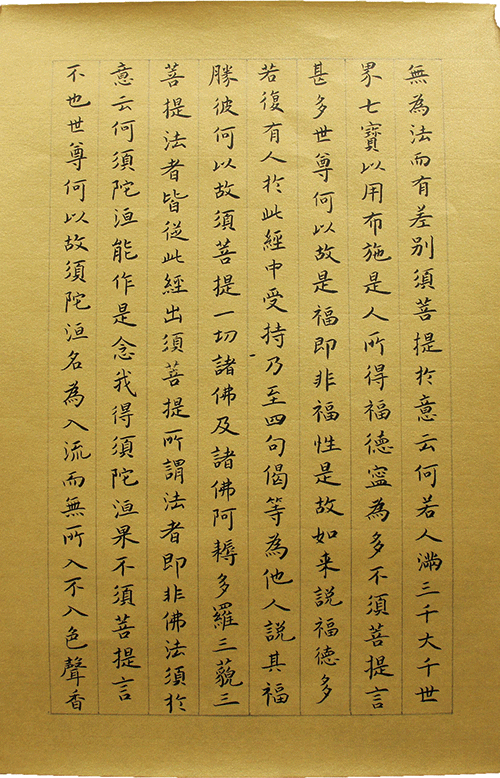 無為法而有差別須菩提於意云何若人滿三千大千世
界七寶以用布施是人所得福德寧為多不須菩提言
甚多世尊何以故是福即非福性是故如来說福德多
若復有人於此經中受持乃至四句偈等為他人說其福
勝彼何以故須菩提一切諸佛及諸佛阿耨多羅三藐三
菩提法者皆從此經出須菩提所謂法者即非佛法須於
意云何須陀洹能作是念我得須陀洹果不須菩提言
不也世尊何以故須陀洹名為入流而無所入不入色聲香